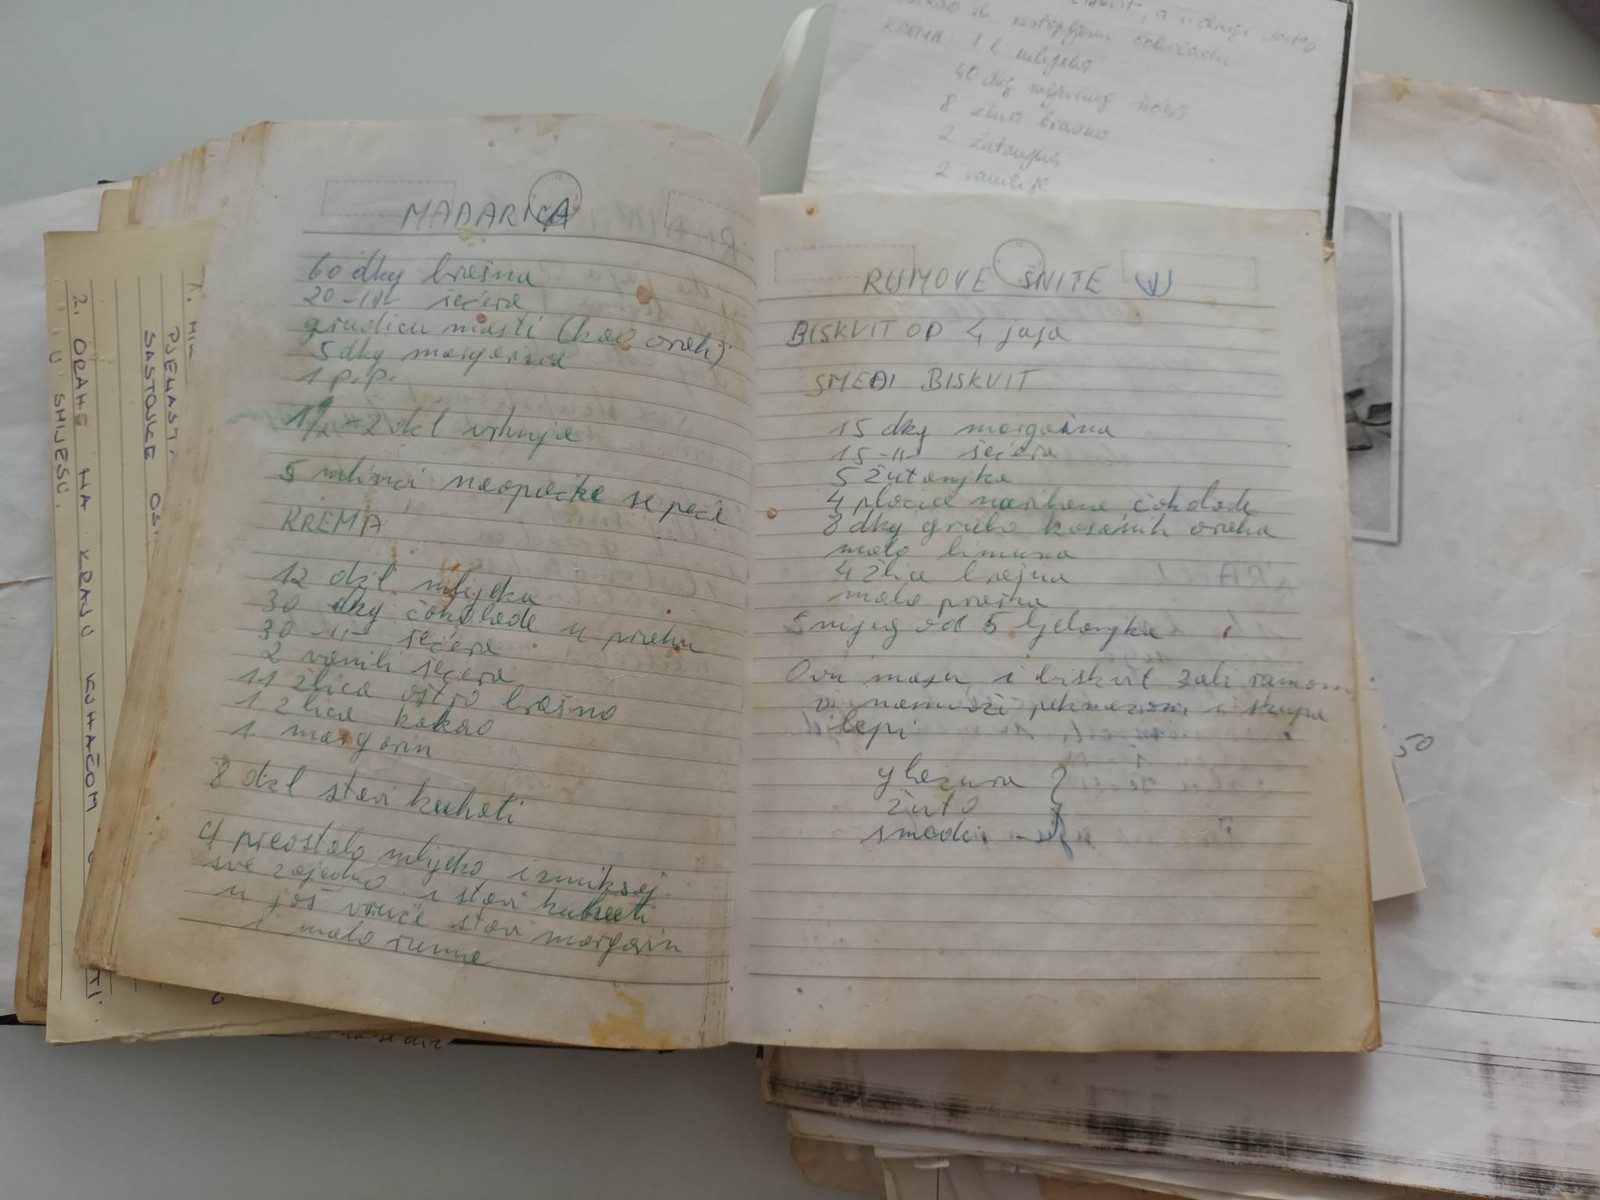 MAĐARICA
60 dkg brašna
20 -||- šećera
grudicu masti (kao orah)
5 dkg margarina
1 p.p.
1 1/2 - 2 dcl vrhnja
5 mlinci naopačke se peče
KREMA
12 dcl mlijeka
30 dkg čokolade u prahu
30 -||- šećera
2 vanili šećera
11 žlica oštro brašno
1 žlica kakao
1 margarin
8 dcl stavi kuhati
4 preostalo mlijeko izmiksaj
sve zajedno i stavi kuhati
u još vruće stavi margarin
i malo ruma
RUMOVE ŠNITE
BISKVIT OD 4 jaja
SMEĐI BISKVIT
15 dkg margarina
15 -||- šećera
5 žutanjka
4 pločice naribane čokolade
8 dkg grubo kosanih oraha
malo limuna
4 žlice brašna
malo praška
Snijeg od 5 bjelanjka
Ovu masu i biskvit zali rumom
namaži pekmezom i skupa
lepi
glazura
žuto
smeđe
KREMA 1 l mlijeka
40 dkg šećera
8 žlica brašna
2 žutanjka
2 vanilije
PJENAST
SASTOJKE
2. ORAHE NA KRAJU KUHAČOM
U SMJESU.
50